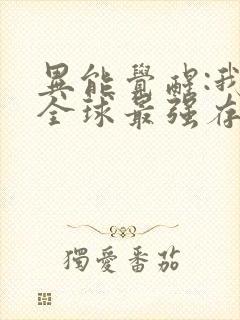 異能覺醒:我
全球最强存
獨愛番茄